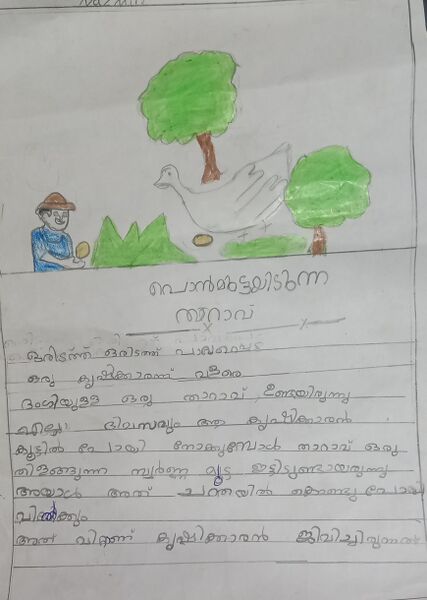 പൊൻമുട്ടയിടുന്ന
താറാവ്
ഒരിടത്ത് ഒരിടത്ത് പാവപ്പെട്ട
ഒരു കൃഷിക്കാരന്ന് വളരെ
ഭംഗിയുള്ള ഒരു താറാവ് ഉണ്ടായിരുന്നു
എല്ലാ ദിവസവും ആ കൃഷിക്കാരൻ
കൂട്ടിൽ പോയി നോക്കുമ്പോൾ താറാവ് ഒരു
തിളങ്ങുന്ന സ്വർണ്ണ മുട്ട ഇട്ടിട്ടുണ്ടായരുന്നു
അയാൾ അത് ചന്തയിൽ കൊണ്ടു പോയി
വിൽക്കും
അത് വിറ്റാണ് കൃഷിക്കാരൻ ജീവിച്ചിരുന്നത്